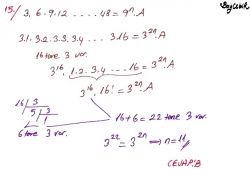 15/ 3.6.9.12 ..... 48 = 9ⁿ.A
3.1.3.2.3.3.3.4 .... 3.16 = 3²ⁿ.A
16 tane 3 var.
3¹⁶. 1.2.3.4 .... 16 = 3²ⁿ.A
3¹⁶. 16! = 3²ⁿ.A
16 | 3
5 | 3
1
6 tane 3 var.
16+6 = 22 tane 3 var.
3²² = 3²ⁿ ⟹ n = 11
CEVAP: B